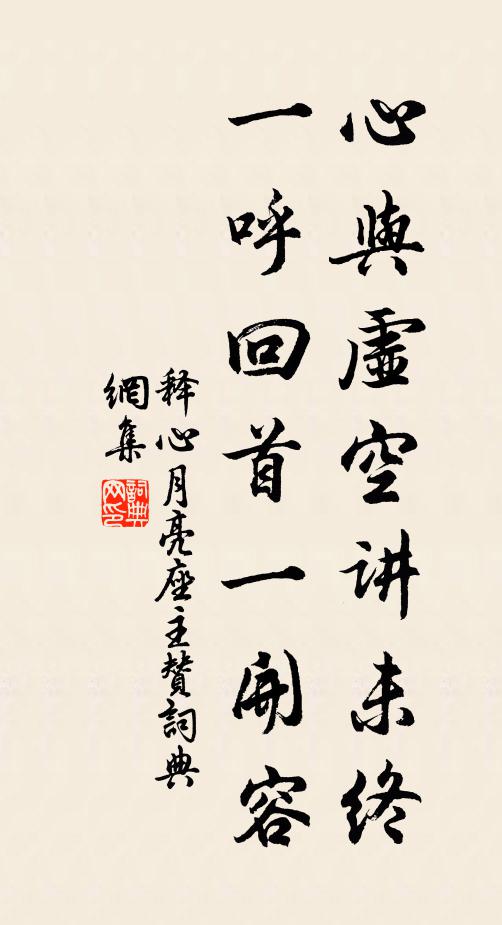 心與虛空讲未终
一呼回首一開容
释心月亮座主赞詞典
網集
詞典
網印